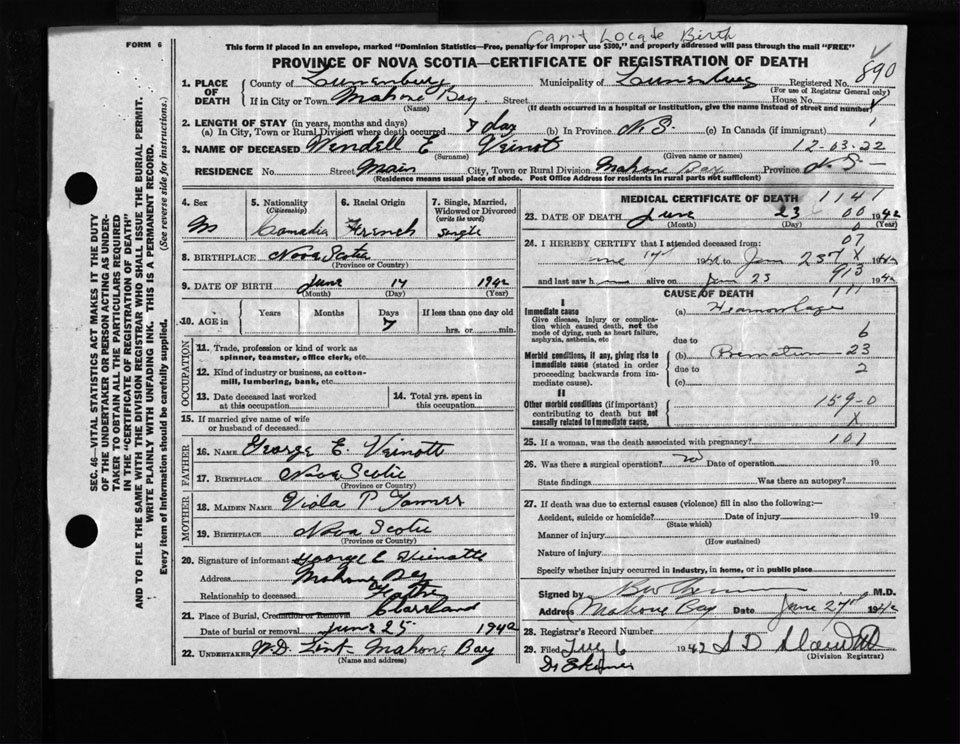 Can't Locate Birth
FORM 6
This form if placed in an envelope, marked "Dominion Statistics—Free, penalty for improper use $300," and properly addressed will pass through the mail "FREE"
PROVINCE OF NOVA SCOTIA—CERTIFICATE OF REGISTRATION OF DEATH
890
1. PLACE OF DEATH County of Lunenburg Municipality of Lunenburg Registered No.
(For use of Registrar General only)
If in City or Town Mahone Bay Street House No.
(Name) (If death occurred in a hospital or institution, give the name instead of street and number)
2. LENGTH OF STAY (in years, months and days)
(a) In City, Town or Rural Division where death occurred 7 day (b) In Province N.S. (c) In Canada (if immigrant)
3. NAME OF DECEASED Wendell E Veinott 12-03-22
(Surname) (Given name or names)
RESIDENCE No. Street Main City, Town or Rural Division Mahone Bay Province N.S.
(Residence means usual place of abode. Post Office Address for residents in rural parts not sufficient)
4. Sex 5. Nationality (Citizenship) 6. Racial Origin 7. Single, Married, Widowed or Divorced (write the word)
M Canadia French single
8. BIRTHPLACE Nova Scotia
(Province or Country)
9. DATE OF BIRTH June 17 1942
(Month) (Day) (Year)
10. AGE in Years Months Days If less than one day old
7 hrs. or min.
OCCUPATION
11. Trade, profession or kind of work as spinner, teamster, office clerk, etc.
12. Kind of industry or business, as cotton-mill, lumbering, bank, etc.
13. Date deceased last worked at this occupation
14. Total yrs. spent in this occupation
15. If married give name of wife or husband of deceased
FATHER
16. NAME George E. Veinott
17. BIRTHPLACE Nova Scotia
(Province or Country)
MOTHER
18. MAIDEN NAME Viola P
19. BIRTHPLACE Nova Scotia
(Province or Country)
20. Signature of informant George E
Address Mahone Bay
Relationship to deceased Father
21. Place of Burial, Cremation or Removal Clareland
Date of burial or removal June 25 1942
22. UNDERTAKER W.D. Mahone Bay
(Name and address)
MEDICAL CERTIFICATE OF DEATH 1141
23. DATE OF DEATH June 23 00 1942
(Month) (Day) (Year)
0
24. I HEREBY CERTIFY that I attended deceased from: 07
June 17 1942 to June 23 1942
and last saw h alive on June 23 913 1942
CAUSE OF DEATH 111
I
Immediate cause
Give disease, injury or complication which caused death, not the mode of dying, such as heart failure, asphyxia, asthenia, etc
(a) Heamorrhage
due to 6
Morbid conditions, if any, giving rise to immediate cause (stated in order proceeding backwards from immediate cause).
(b) 23
due to 2
(c)
II
Other morbid conditions (if important) contributing to death but not causally related to immediate cause.
159-0
X
25. If a woman, was the death associated with pregnancy? 101
26. Was there a surgical operation? no Date of operation 19
State findings Was there an autopsy?
27. If death was due to external causes (violence) fill in also the following:—
Accident, suicide or homicide? Date of injury 19
(State which)
Manner of injury
(How sustained)
Nature of injury
Specify whether injury occurred in industry, in home, or in public place
Signed by M.D.
Address Mahone Bay Date June 27 1942
28. Registrar's Record Number
29. Filed July 6 1942 S D
(Division Registrar)
SEC. 46—VITAL STATISTICS ACT MAKES IT THE DUTY
OF THE UNDERTAKER OR PERSON ACTING AS UNDER-
TAKER TO OBTAIN ALL THE PARTICULARS REQUIRED
IN THE "CERTIFICATE OF REGISTRATION OF DEATH"
AND TO FILE THE SAME WITH THE DIVISION REGISTRAR WHO SHALL ISSUE THE BURIAL PERMIT.
WRITE PLAINLY WITH UNFADING INK. THIS IS A PERMANENT RECORD.
Every item of information should be carefully supplied. (See reverse side for instructions.)